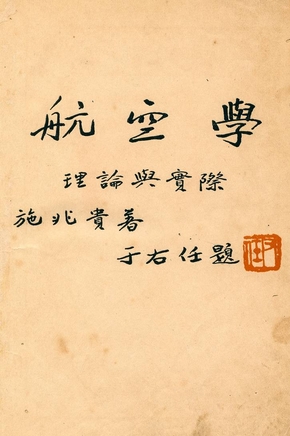 航空學
理論與實際
施兆貴著
于右任題